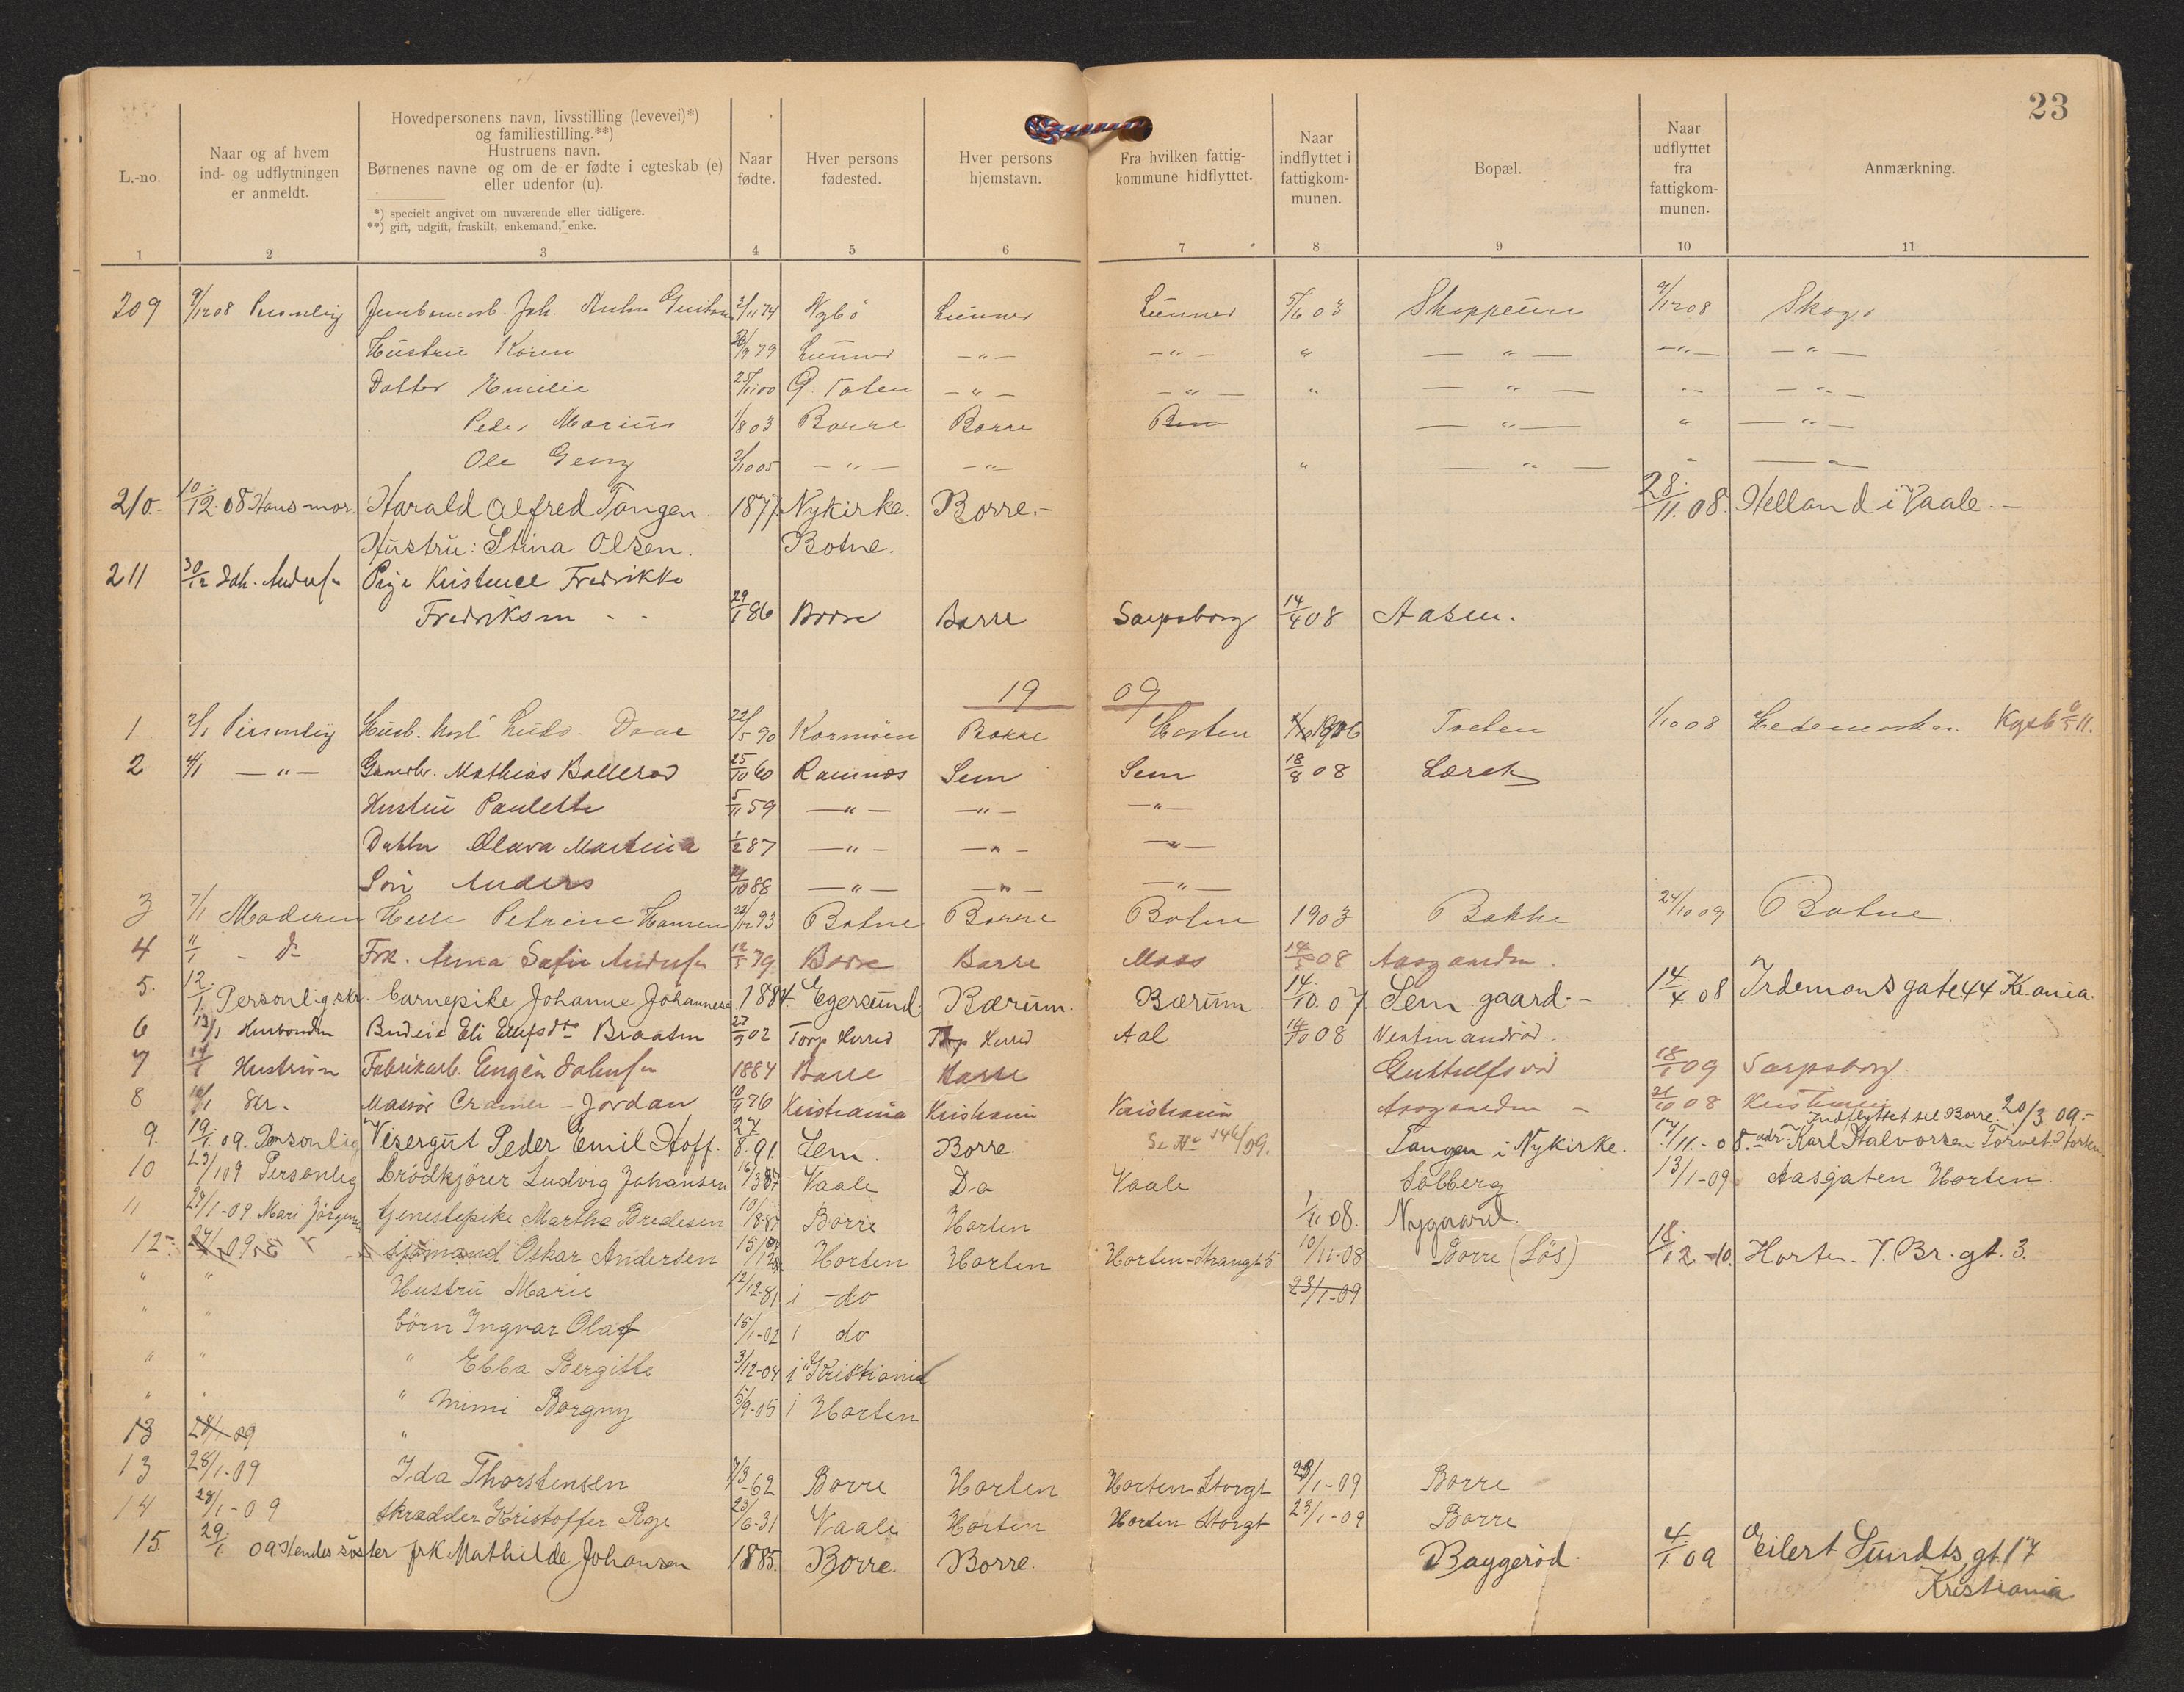 23
L.-no.
Naar og af hvem ind- og udflytningen er anmeldt.
Hovedpersonens navn, livsstilling (levevei)*)
og familiestilling.**)
Hustruens navn.
Børnenes navne og om de er fødte i egteskab (e)
eller udenfor (u).
*) specielt angivet om nuværende eller tidligere.
**) gift, udgift, fraskilt, enkemand, enke.
Naar fødte.
Hver persons fødested.
Hver persons hjemstavn.
Fra hvilken fattig-kommune hidflyttet.
Naar indflyttet i fattigkom-munen.
Bopæl.
Naar udflyttet fra fattigkom-munen.
Anmærkning.
1 2 3 4 5 6 7 8 9 10 11
209 9/12 08 Personlig Joh. Anton 2/11 74 Nybö Lunner Lunner 5/6 03 Skoppum 9/12 08 Skoger
Hustru Karen 79 Lunner —"— —"— " —"— —"— —"—
Datter Emilie 25/11 00 Ø. Toten —"— —"— " —"— —"—
Peder Marius 1/8 03 Borre Borre —"— " —"—
Ole Georg 2/10 05 —"— —"— " —"— " —"—
210.- 10/12. 08 Hans mor. Harald Alfred Tangen. 1877. Nykirke. Borre.- 28./11. 08. Helland i Vaale.-
Hustru: Stina Olsen. Botne.
211 30/12 Joh. Anders Pige Kristence Fredrikke
Fredriksen 29/1 86 Borre Borre Sarpsborg 14/4 08 Aasen.
19 09
1 2/1 Personlig Ludv. Daae 22/5 90 Karmöen Borre Horten 1906 Toften 1/10 08 Hedemarken.
2 4/1 —"— Mathias Bollerød 25/10 60 Ramnæs Sem Sem 18/8 08
Hustru Paulette 5/11 59 —"— —"— —"—
Datter Olava Martinia 1/2 87 —"— —"— —"—
Søn Anders 88 —"— —"— —"—
3 7/1 Moderen Petrine Hansen 22/12 93 Botne Borre Botne 1903 Bakke 24/10 09 Botne
4 11/1 - d- Frk. Anna Sofie Andersen 12/5 79 Borre Borre Moss 14/5 08 Aasgaarden.
5. 12./1 Personlig skr. barnepike Johanne Johannesen 1884. Egersund. Bærum. Bærum. 14./10. 07. Sem gaard.- 14/4 08 44 Kr.ania.
6 13/1 Husbonden Budeie Eli Braaten 27/9 02 Torp Herred Torp Herred Aal 14/10 08
7 14/1 Hustruen Fabrikarb. Eugen 1884 Borre Borre 18/1 09 Sarpsborg.
8 16/1 skr. Massör Cramer - Jordan 10/9 76 Kristiania Kristiania Kristiania Aasgaarden - 08 Kristiania
Indflyttet til Borre. 20/3 09.-
9. 19./1. 09. Personlig Visergut Peder Emil Hoff. 27/8. 91. Sem. Borre. Se No 146/09. Tangen i Nykirke. /11.-08. adr: Karl Halvorsen Torvet Horten
10 23/1 09 Personlig brödkjörer Ludvig Johansen 16/3 87 Vaale Do Vaale Solberg 13/1-09 Aasgaten Horten
11 27/1-09. Mari Jörgens tjenestepike Martha Bredesen 10/8 87 Borre Horten 1/11 08. Nygaard.
12 - 27/1 09 sjömand Oskar Andersen 15/12 Horten Horten Horten-Strangt 5 10/11-08 Borre (Løs) 18./12-10. Horten. 7. Br. gt. 3.
" " Hustru Marie 12/12-81 i -do 23/1-09
" " börn Ingvar Olaf 15/1-02 i do
" " " Ebba Bergitte 3/12-04 i Kristiania
" " " Mimi Borgny 5/9-05 i Horten
13 28/1-09 "
13 28/1-09 Ida Thorstensen 7/3-62 Borre Horten Horten Storgt 23/1-09 Borre
14 28/1-09 skrædder Kristoffer Roje 23/6-31 Vaale Horten Horten Storgt 23/1-09 Borre
15. 29./1. 09 Hendes søster frk Mathilde Johansen 1885. Borre. Borre. Baggerød. 4/1. 09 Eilert Sundts gt. 17
Kristiania.